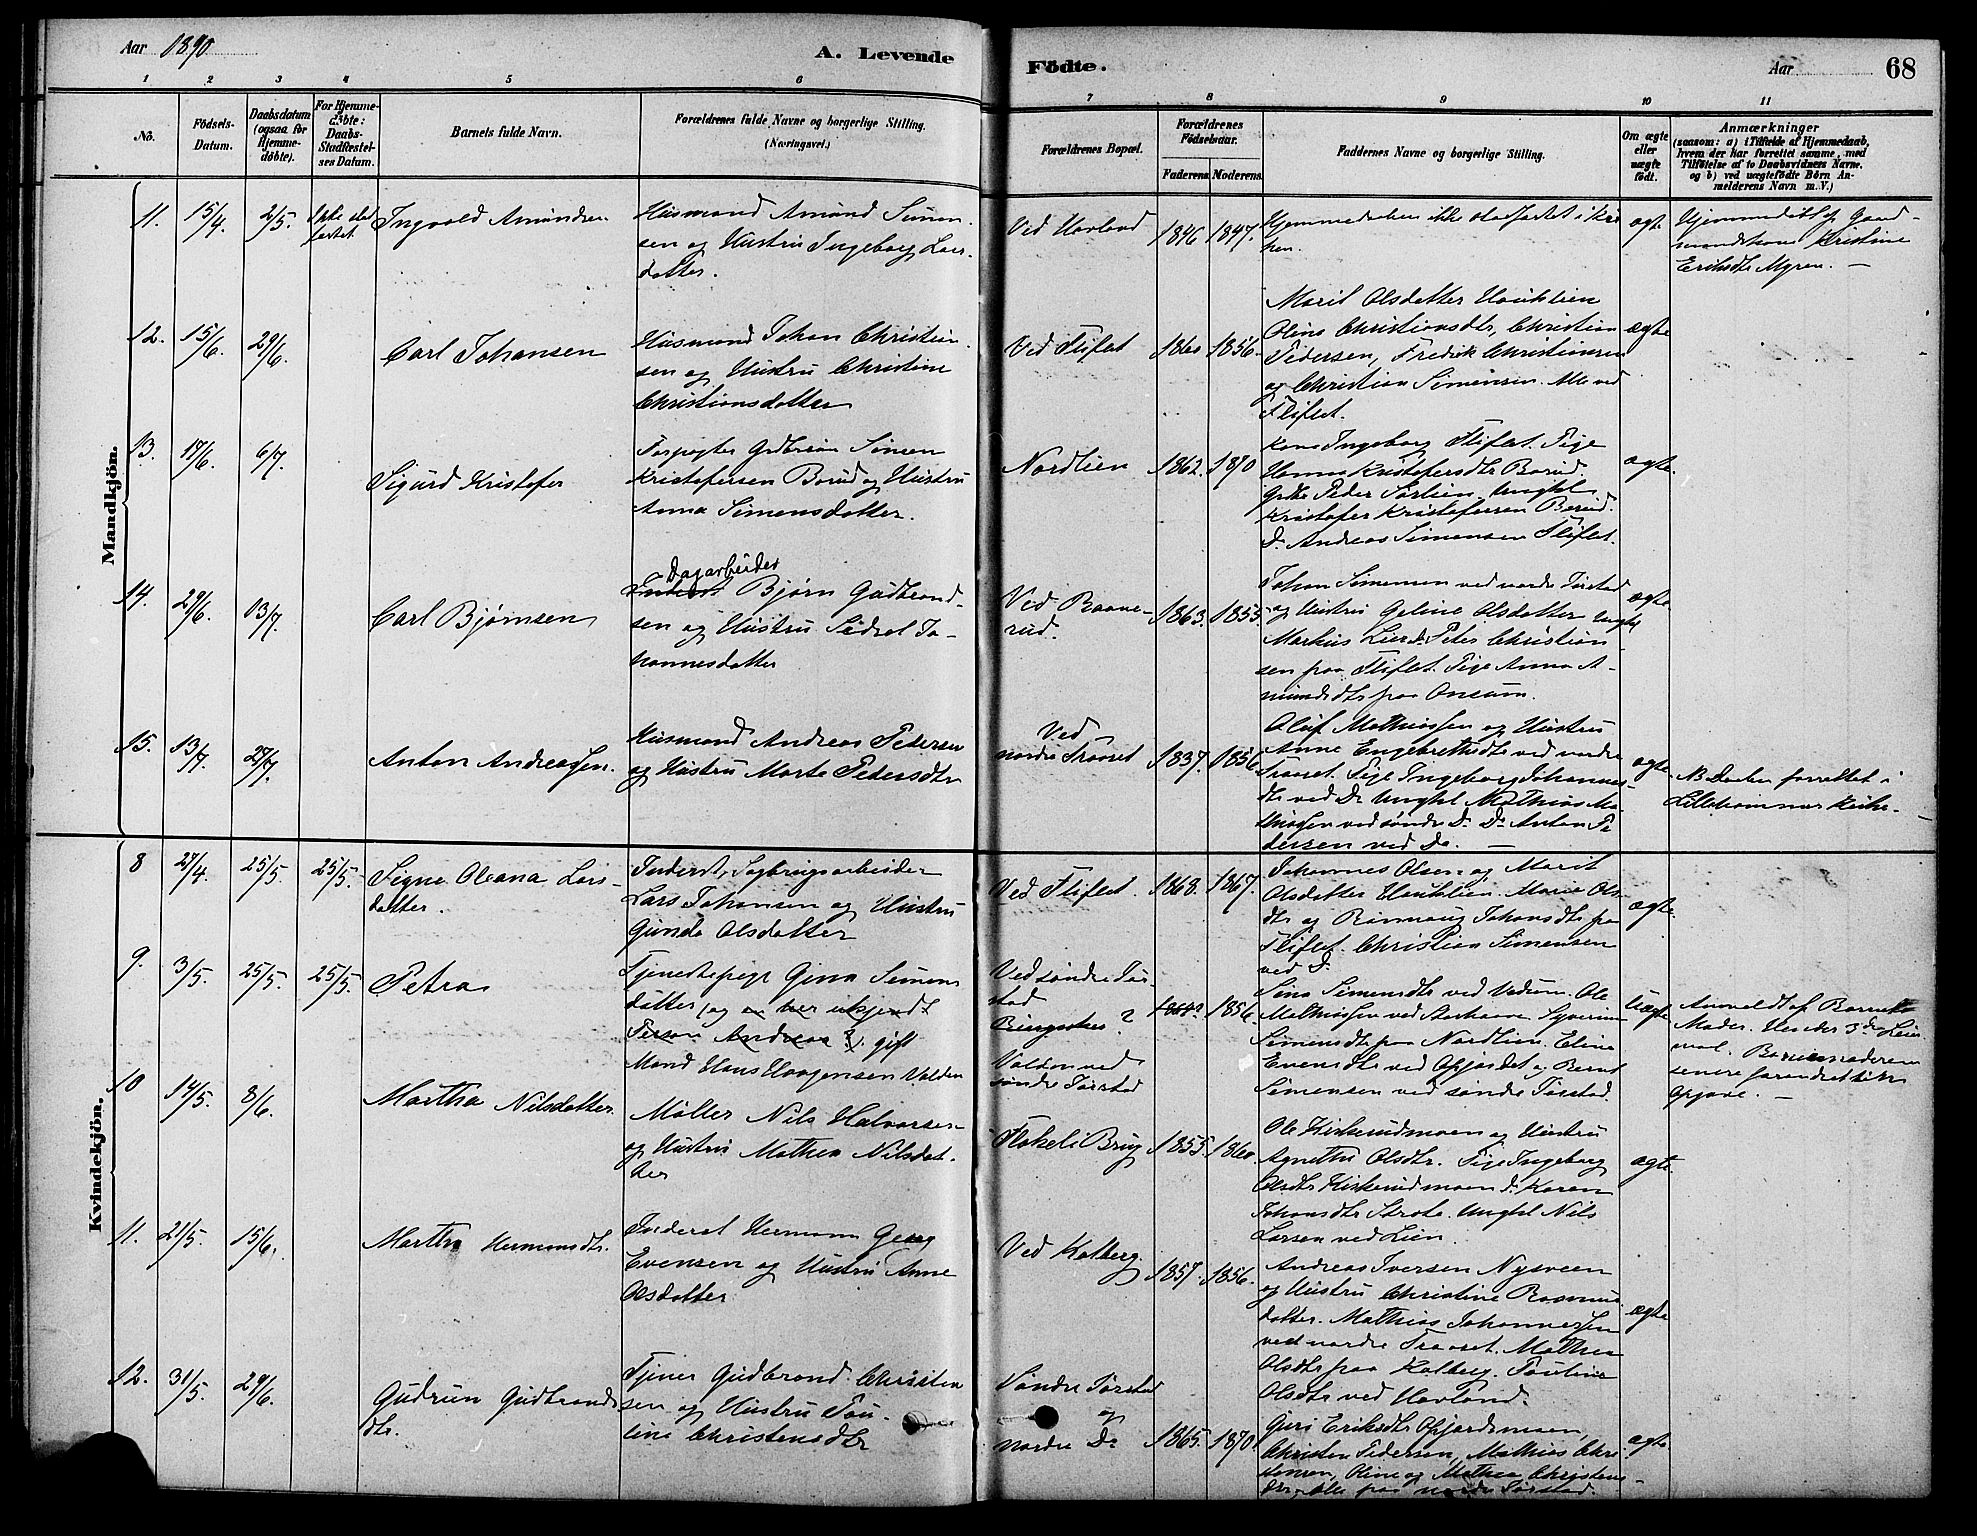 Aar 1890
A. Levende
Födte.
Aar
68
1 2 3 4 5 6 7 8 9 10 11
Nò.
Födsels-
Datum.
Daabsdatum
(ogsaa for
Hjemme-
döbte).
For Hjemme-
döbte:
Daabs-
Stadfæstel-
ses Datum.
Barnets fulde Navn.
Forældrenes fulde Navne og borgerlige Stilling.
(Næringsvei.)
Forældrenes Bopæl.
Forældrenes
Födselsaar.
Faderens. Moderens.
Faddernes Navne og borgerlige Stilling.
Om ægte
eller
uægte
födt.
Anmærkninger
(saasom: a) i Tilfælde af Hjemmedaab,
hvem der har forrettet samme, med
Tilföielse af to Daabsvidners Navne.
og b) ved uægtefödte Börn An-
melderens Navn m. V.)
Mandkjön.
11. 15/4. 2/5. Ikke stad
fæstet.
Ingvald Amundsen
Husmand Amund Simen-
sen og Hustru Ingeborg Lars-
datter.
Ved Hovland
1846 1847.
Hjemmedaaben ikke stadfæstet i kir
ken.
ægte
Hjemmedøbt af Gaard-
mandskone Kristine
Eriksdtr Myren. —
12. 15/6. 29/6.
Carl Johansen
Husmand Johan Christian-
sen og Hustru Christine
Christiansdatter
Ved Fliflet
1860 1856.
Marit Olsdatter Hauklien
Oline Christiansdtr, Christian
Pedersen, Fredrik Christiansen
og Christian Simensen. Alle ved
Fliflet.
ægte
13. 17/6. 6/7.
Sigurd Kristofer
Forpagter Gdbrsøn Simen
Kristofersen Borud og Hustru
Anna Simensdatter.
Nordlien
1862. 1870
Kone Ingeborg Fliflet. Pige
Hanna Kristofersdtr Borud.
Peder Sørlien. Ungkl
Kristofer Kristofersen Borud.
Do Andreas Simensen Fliflet.
ægte.
14. 29/6. 13/7.
Carl Bjørnsen
Dagarbeider
Bjørn Gudbrand-
sen og Hustru Sidsel Jo-
hannesdatter
Ved Raane-
rud.
1863. 1855.
Johan Simensen ved nordre Torstad
og Hustru Geline Olsdatter Ungkl
Markus Lier Do Peter Christian-
sen paa Fliflet. Pige Anna A-
mundsdtr paa Onsum.
ægte
15. 13/7. 27/7.
Anton Andreassen.
Husmand Andreas Pedersen
og Hustru Marte Pedersdtr
Ved
nordre Traaset
1837. 1856
Oluf Mathiassen og Hustru
Anne Engebrethsdtr ved nordre
Traaset. Pige Ingeborg Johannes-
dtr ved Do Ungkl Mathias Ma-
thiassen ved søndre Do. Do Anton Pe
dersen ved Do. —
ægte.
NB Daaben forrettet i
Lillehammer Kirke-
Kvindekjön.
8 27/4. 25/5. 25/5.
Signe Oleana Lars-
datter.
Inderst, Sagbrugsarbeider
Lars Johansen og Hustru
Gunda Olsdatter
Ved Fliflet.
1868. 1867.
Johannes Olsen og Marit
Olsdatter Hauklien Marie Ols-
dtr og Rønnaug Johansdtr paa
Fliflet. Christian Simensen
ved Do
ægte.
9. 3/5. 25/5. 25/5.
Petra
Tjenestepige Gina Simens
datter (og en her ukjendt
Person Andreas ?). gift
Mand Hans Haagensen Volden
Ved søndre Tor-
stad
?
Volden ved
søndre Torstad
1856.
Sina Simensdtr ved Vedum. Ole
Mathiassen ved Aahaven Syverine
Simensdtr paa Nordlien. Eline
Evensdtr ved Opjordet og Bernt
Simensen ved søndre Torstad.
Uægte
Anmeldt af Barnets
Moder. Hendes 3die Leier-
maal. Barnemoderens
senere forandret sin
Opgave. —
10 14/5. 8/6.
Martha Nilsdatter.
Møller Nils Halvorsen
og Hustru Mathea Nilsdat-
ter
Flakeli Brug
1855. 1860.
Ole Kirkerudmoen og Hustru
Agnethe Olsdtr. Pige Ingeborg
Olsdtr Kirkerudmoen Do Karen
Johansdtr Strate. Ungkl Nils
Larsen ved Lien.
ægte
11. 21/5. 15/6.
Martha Hermansdtr.
Inderst Hermann Georg
Evensen og Hustru Anne
Olsdatter
Ved Kalberg
1857. 1856.
Andreas Iversen Nysveen
og Hustru Christine Rasmus-
datter. Mathias Johannessen
ved nordre Traaset. Mathea
Olsdtr paa Kalberg. Pauline
Olsdtr ved Hovland.
ægte
12. 31/5. 29/6.
Gudrun Gudbrands
dtr.
Tjener Gudbrand Christen
sen og Hustru Pau-
line Christensdtr
Søndre Torstad
og
nordre Do
1865. 1870.
Guri Eriksdtr Opjordsmoen,
Christen Pedersen, Mathias Chri-
stensen, Oline og Mathea Christens-
dtr, alle paa nordre Torstad.
ægte